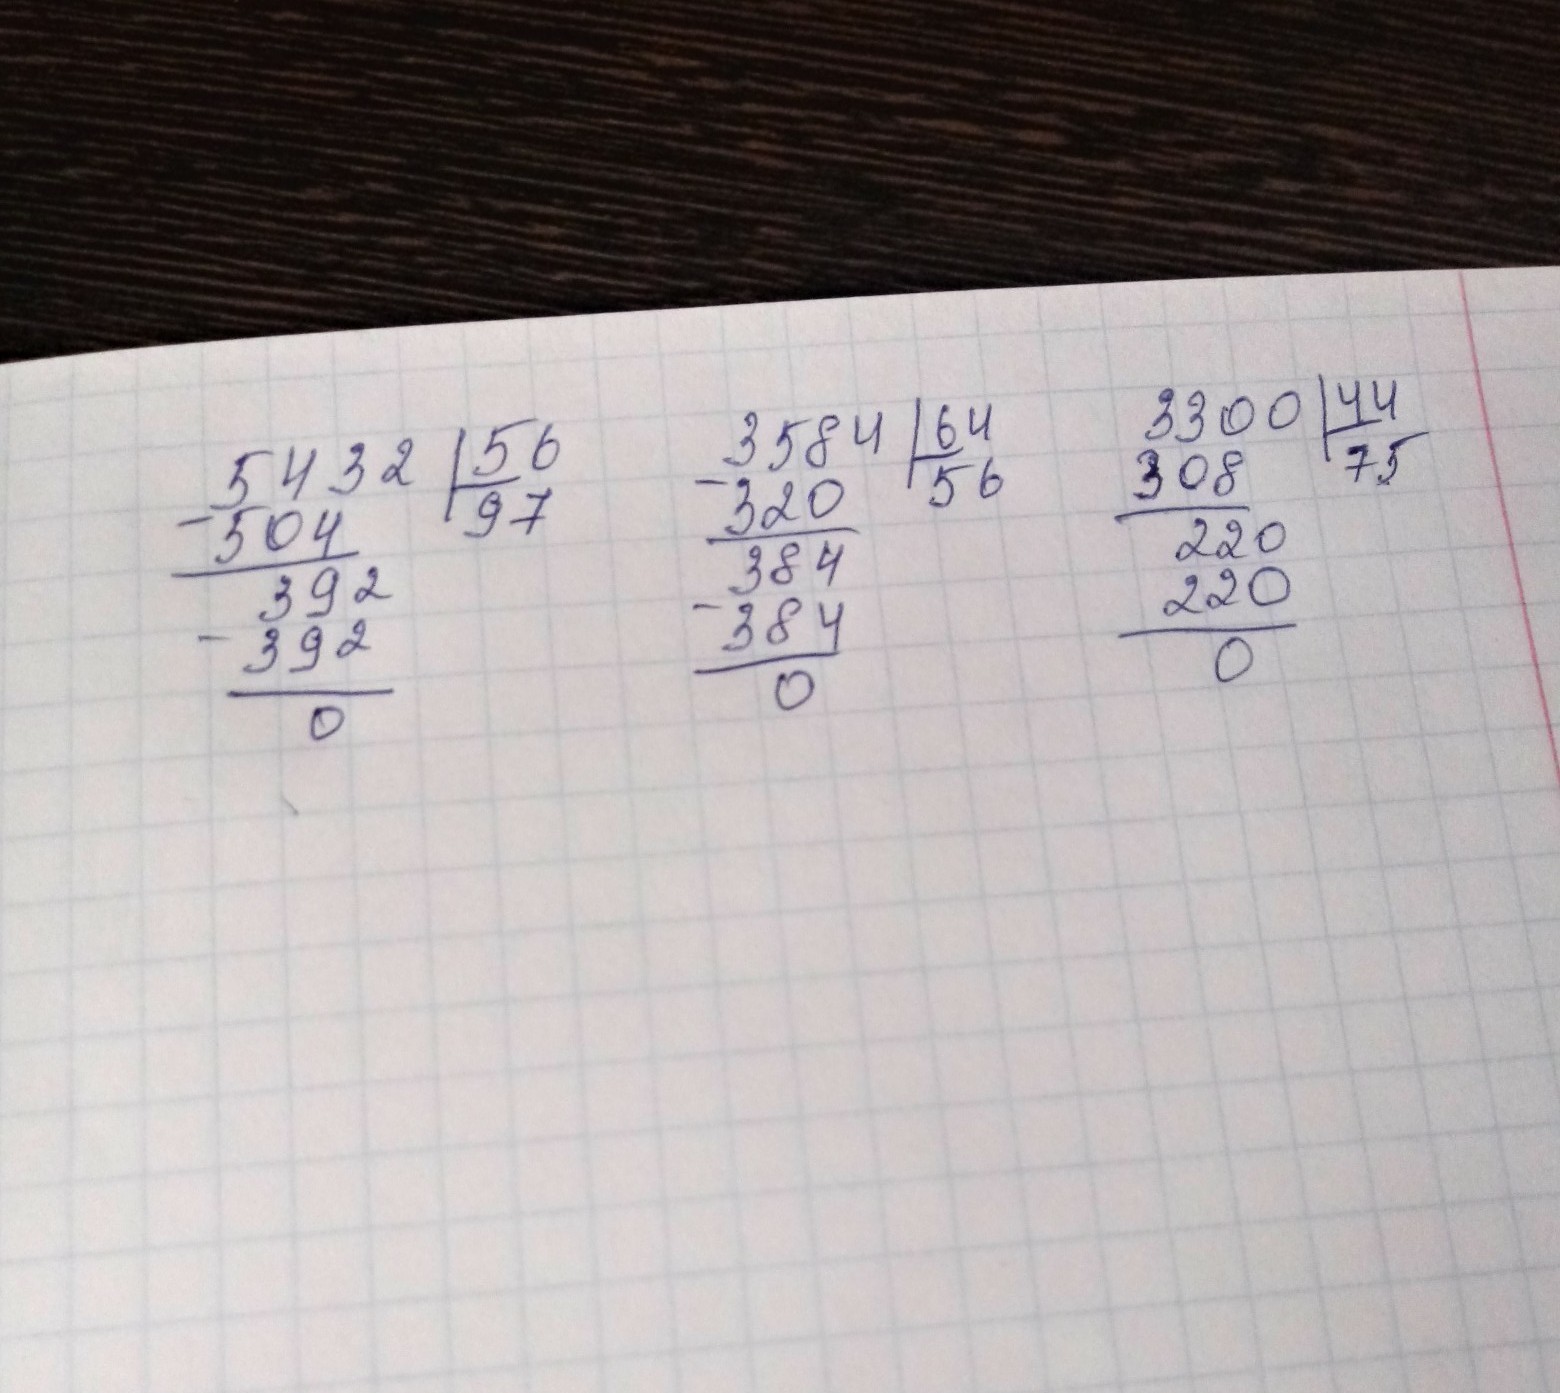 5432 56
- 504 97
392
- 392
0
3584 64
- 320 56
384
- 384
0
3300 44
308 75
220
220
0